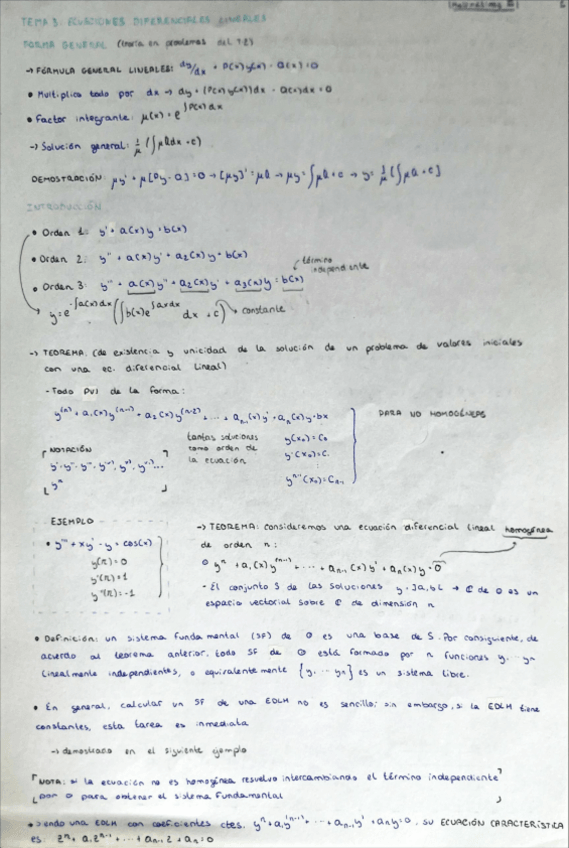 TEMA 3: ECUACIONES DIFERENCIALES LINEALES
FORMA GENERAL (teoría en problemas del T.2)
→ FÓRMULA GENERAL LINEALES: dy/dx + P(x)y(x) - Q(x) = 0
• Multiplico todo por dx → dy + (P(x)y(x))dx - Q(x)dx = 0
• Factor integrante: μ(x) = e^∫P(x)dx
→ Solución general: 1/μ (∫μQdx + c)
DEMOSTRACIÓN: μy' + μ[Py - Q] = 0 → [μy]' = μQ → μy = ∫μQ + c → y = 1/μ [∫μQ + c]
INTRODUCCIÓN
• Orden 1: y' + a(x)y = b(x)
• Orden 2: y'' + a(x)y' + a2(x)y = b(x)
término independiente
• Orden 3: y''' + a(x)y'' + a2(x)y' + a3(x)y = b(x)
y = e^-∫a(x)dx (∫b(x)e^∫axdx dx + c) → constante
→ TEOREMA: (de existencia y unicidad de la solución de un problema de valores iniciales
con una ec. diferencial lineal)
- Todo PVI de la forma:
y^(n) + a1(x)y^(n-1) + a2(x)y^(n-2) + ... + an-1(x)y' + an(x)y = bx
PARA NO HOMOGÉNEAS
tantas soluciones
como orden de
la ecuación
y(x0) = C0
y'(x0) = C1
y^n-1(x0) = Cn-1
NOTACIÓN
y^n
EJEMPLO
• y''' + xy' - y = cos(x)
y(π) = 0
y'(π) = 1
y''(π) = -1
→ TEOREMA: consideremos una ecuación diferencial lineal homogénea
de orden n:
y^n + a1(x)y^(n-1) + ... + an-1(x)y' + an(x)y = 0
- El conjunto S de las soluciones y: ]a,b[ → ℂ de ① es un
espacio vectorial sobre ℂ de dimensión n
• Definición: un sistema fundamental (SF) de ① es una base de S. Por consiguiente, de
acuerdo al teorema anterior, todo SF de ① está formado por n funciones y1 ... yn
linealmente independientes, o equivalentemente {y1 ... yn} es un sistema libre.
• En general, calcular un SF de una EDLH no es sencillo; sin embargo, si la EDLH tiene
constantes, esta tarea es inmediata
→ demostrado en el siguiente ejemplo
NOTA: si la ecuación no es homogénea resuelvo intercambiando el término independiente
por 0 para obtener el sistema fundamental
• Siendo una EDLH con coeficientes ctes. y^n + a1y^(n-1) + ... + an-1y' + any = 0, su ECUACIÓN CARACTERÍSTICA
es: z^n + a1z^n-1 + ... + an-1z + an = 0